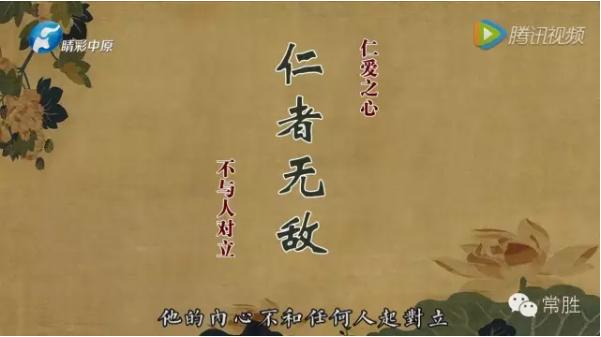 睛彩中原
腾讯视频
仁爱之心
仁者无敌
不与人对立
他的內心不和任何人起對立
常胜